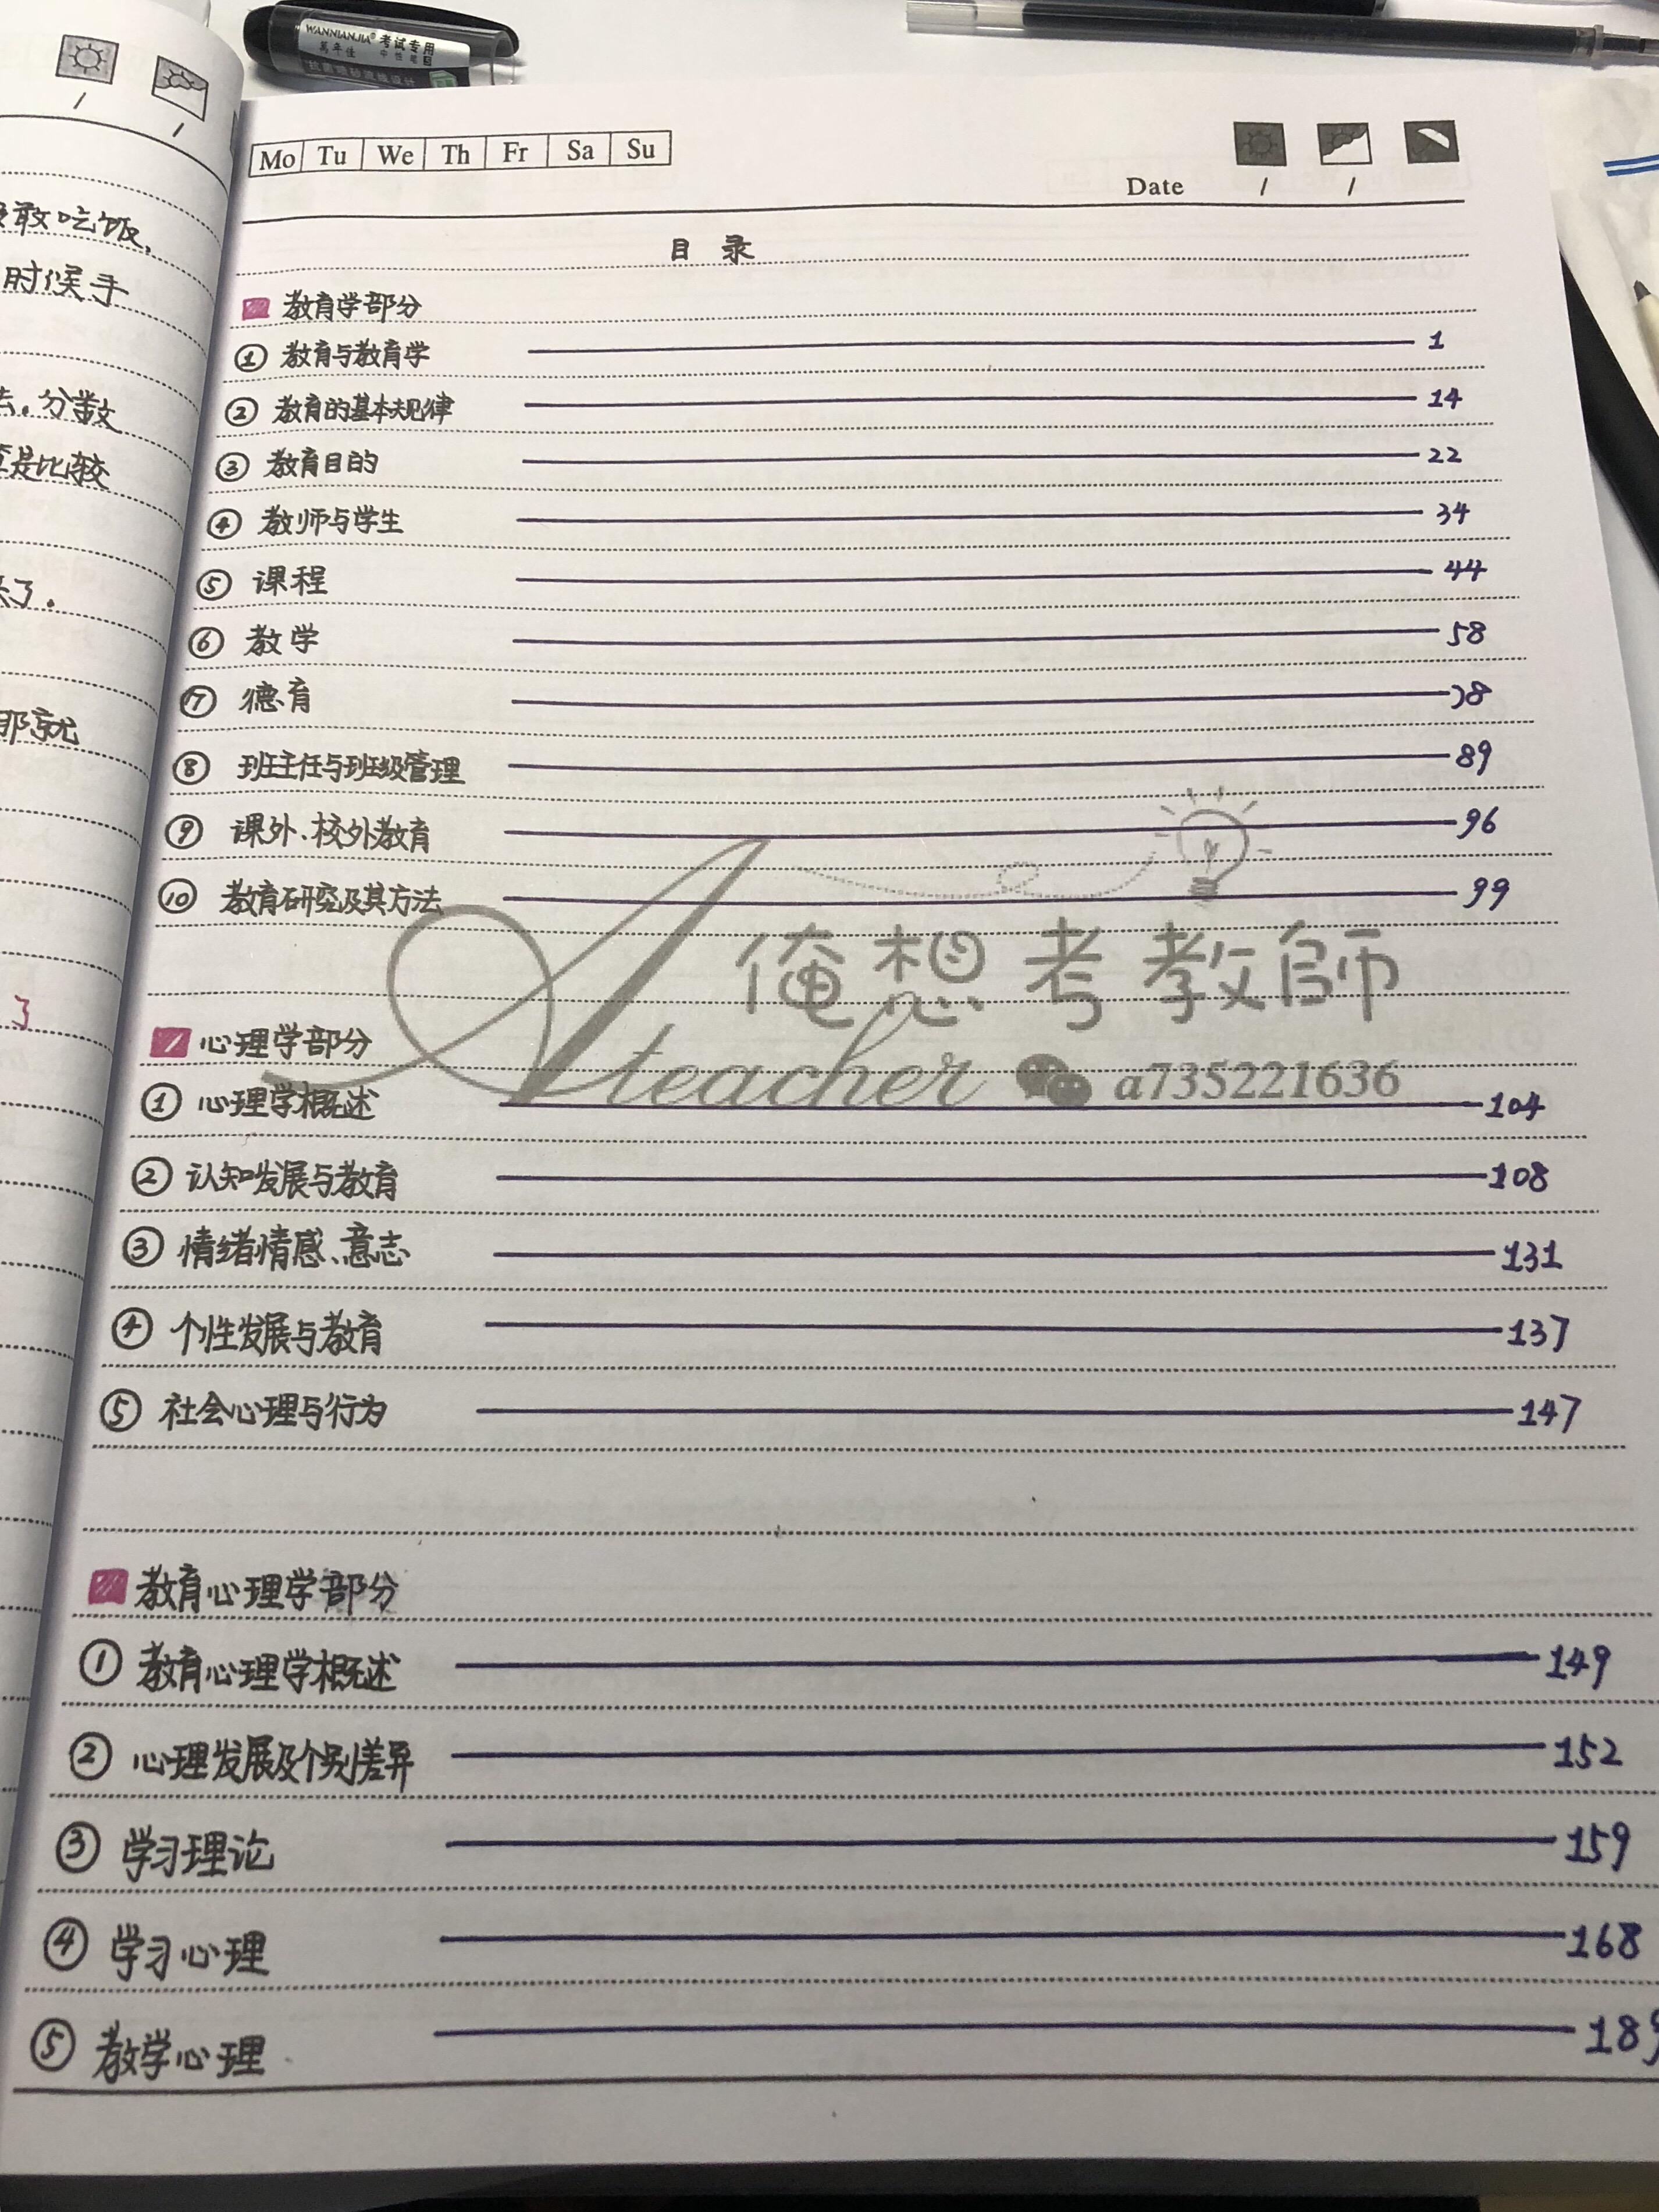 WANNIANJIA® 考试专用
萬年佳 中性笔
抗菌磨砂流线设计
敢吃饭,
时候手
法.分数
是比较
了.
那就
了
Mo Tu We Th Fr Sa Su
Date / /
目 录
教育学部分
① 教育与教育学 1
② 教育的基本规律 14
③ 教育目的 22
④ 教师与学生 34
⑤ 课程 44
⑥ 教学 58
⑦ 德育 78
⑧ 班主任与班级管理 89
⑨ 课外、校外教育 96
⑩ 教育研究及其方法 99
俺想考教師
心理学部分
Ateacher a735221636
① 心理学概述 104
② 认知发展与教育 108
③ 情绪情感、意志 131
④ 个性发展与教育 137
⑤ 社会心理与行为 147
教育心理学部分
① 教育心理学概述 149
② 心理发展及个别差异 152
③ 学习理论 159
④ 学习心理 168
⑤ 教学心理 189